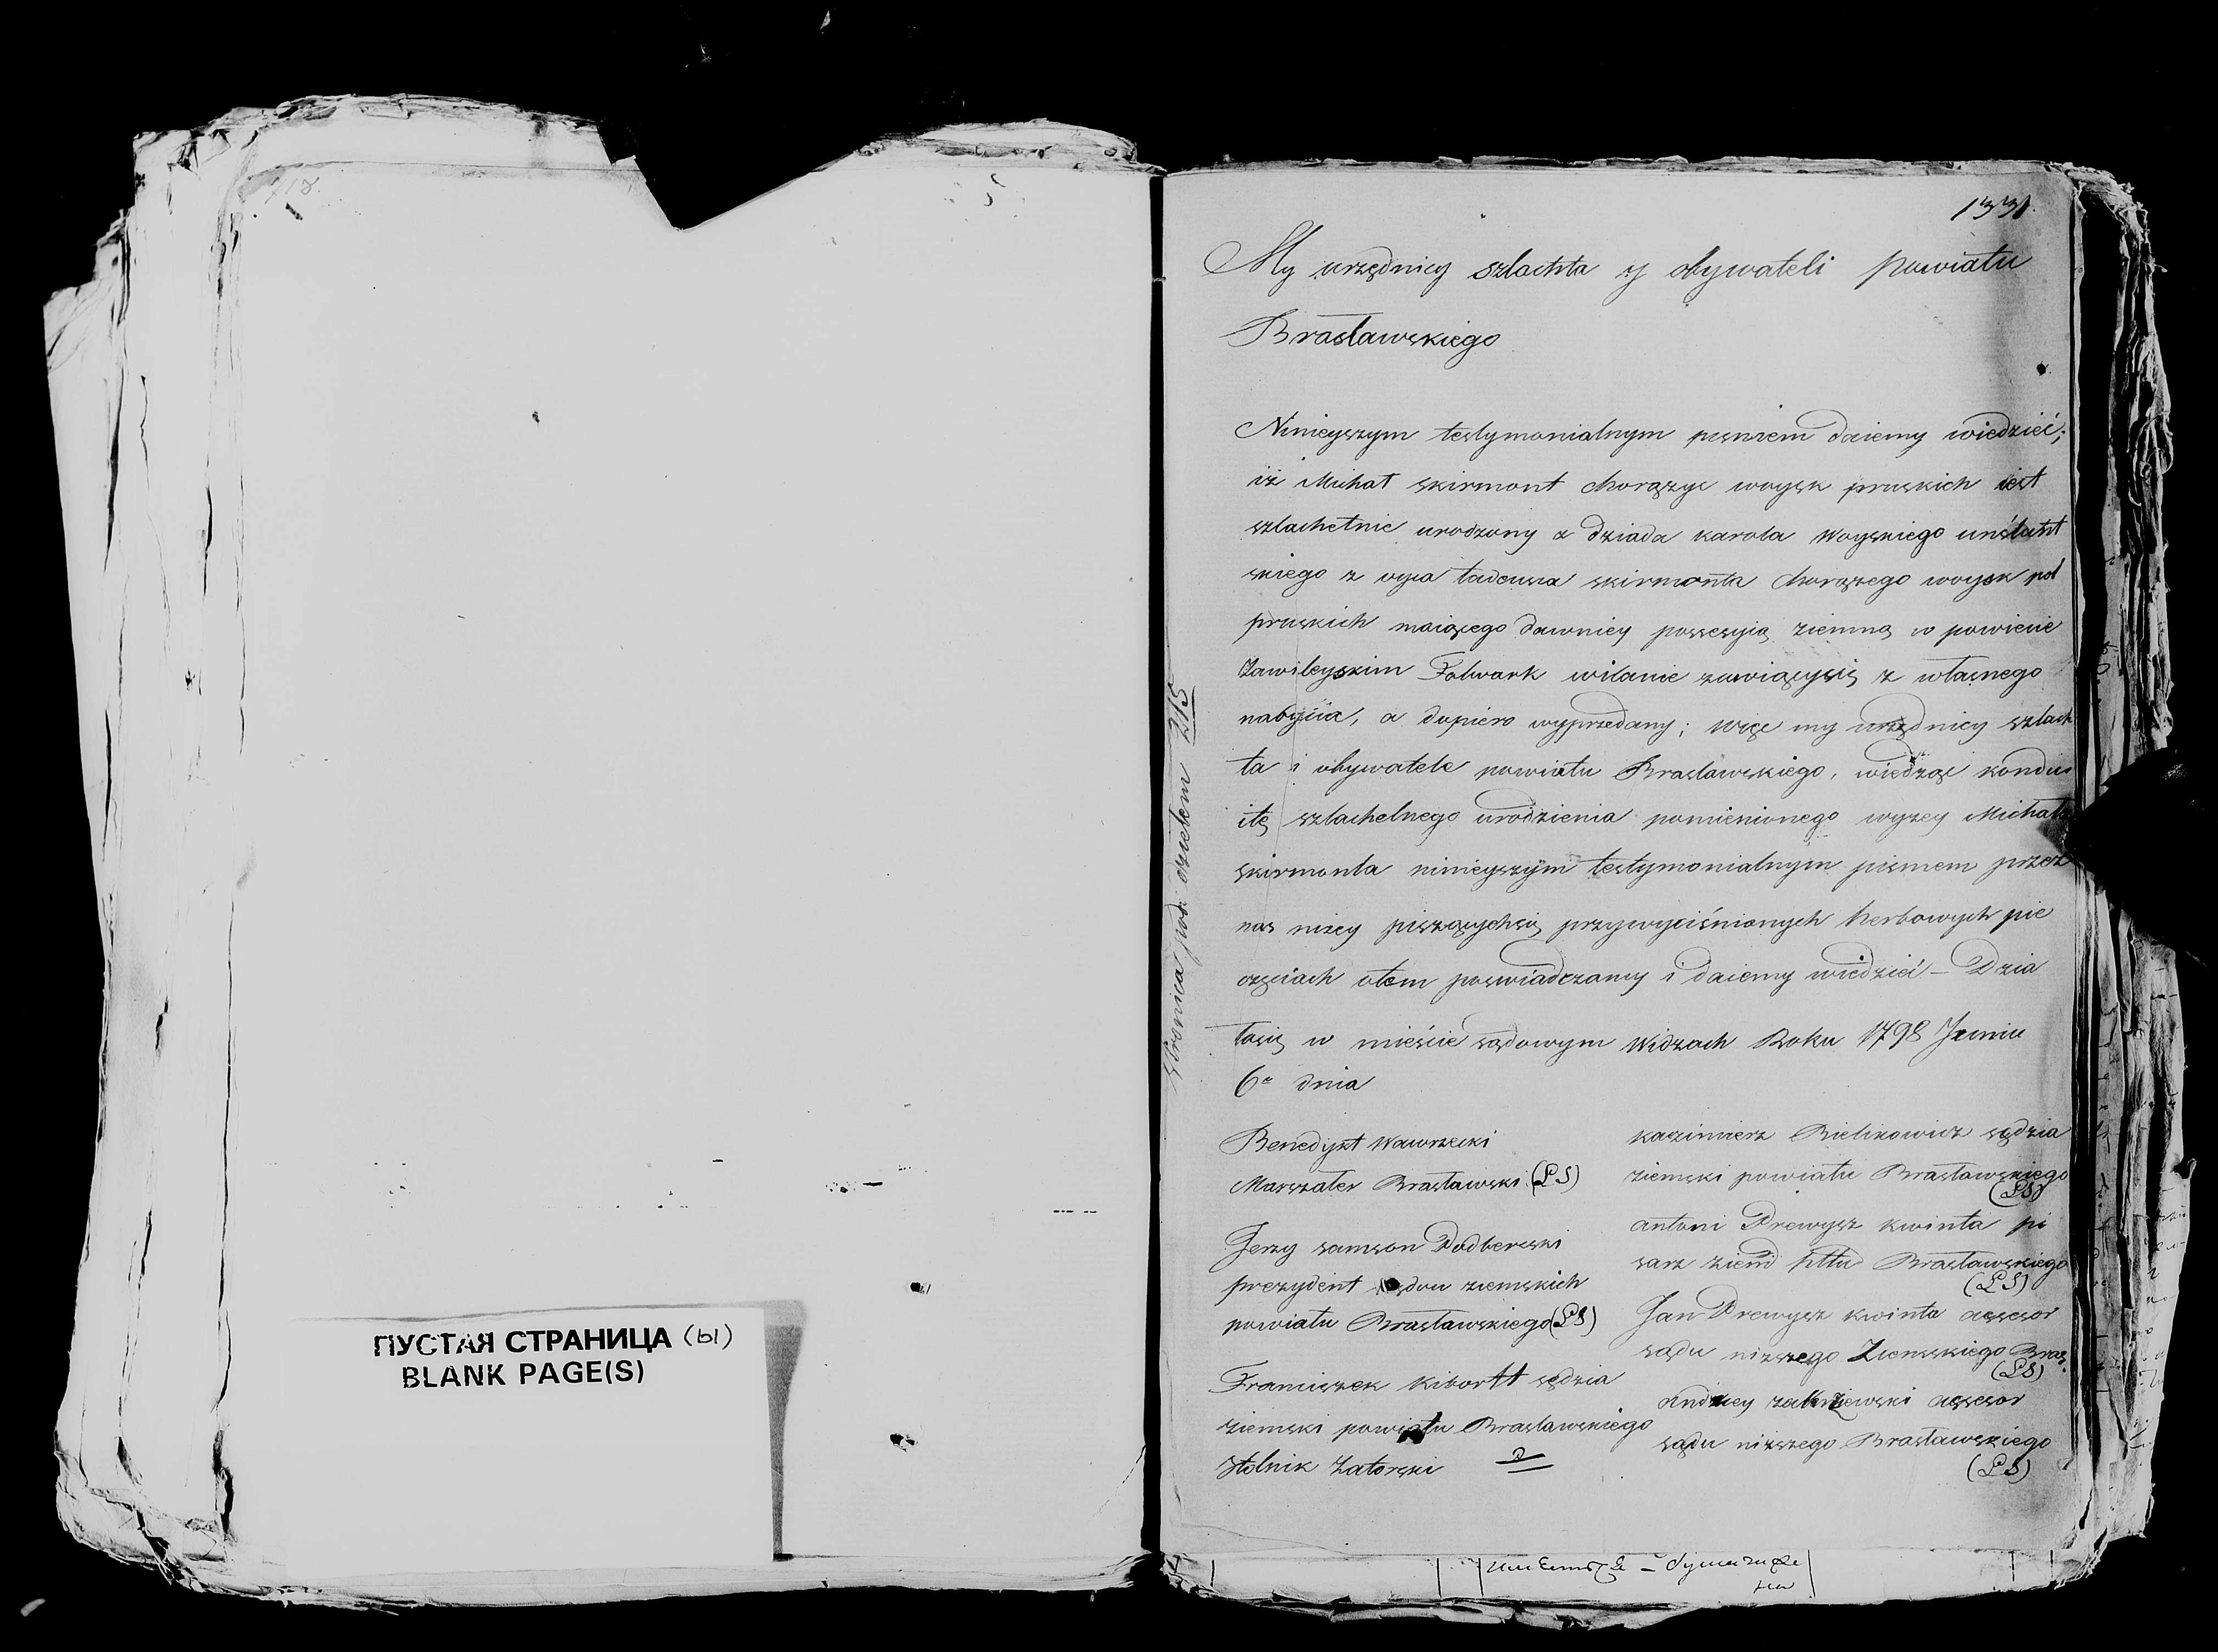 718.
5
ПУСТАЯ СТРАНИЦА (ы)
BLANK PAGE(S)
1331.
My urzędnicy szlachta y obywateli powiatu
Brasławskiego
Ninieyszym testymonialnym pismem daiemy wiedzieć;
iż Michał skirmont chorążyc woysk pruskich iest
szlachetnie urodzony z dziada karola Woyskiego
skiego z oyca tadeusza skirmonta chorążego woysk pol
pruskich maiącego dawniey possesyią ziemną w powiecie
Zawileyskim Folwark witanie zowiącysię z własnego
nabycia, a dopiero wyprzedany; Więc my urzędnicy szlach
ta i obywatele powiatu Brasławskiego, wiedząc kondu
itę szlachetnego urodzienia pomienionego wyżey Michała
skirmonta ninieyszym testymonialnym pismem przez
nas niżey piszącychsię przywyciśnionych herbowych pie
częciach otem poswiadczamy i daiemy wiedzieć – Dzia
łosię w mieście sądowym Widzach Roku 1798 Junii
6a dnia
Benedykt Wawrzecki
Marszałek Brasławski (LS)
Jerzy samson Podbereski
prezydent sądow ziemskich
powiatu Brasławskiego (LS)
Franciszek Kibortt sędzia
ziemski powiatu Brasławskiego
Stolnik Zatorski
kazimierz Bielikowicz sędzia
ziemski powiatu Brasławskiego
(LS)
antoni Drewysz kwinta pi
sarz ziem pttu Brasławskiego
(LS)
Jan Drewysz kwinta assesor
sądu niższego Ziemskiego Bras.
(LS)
Andrzey zakrzewski assesor
sądu niższego Brasławskiego
(LS)
Stronica pod dziełem 215